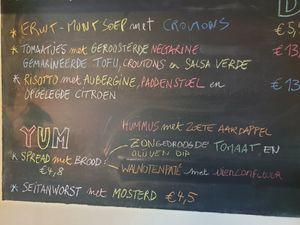 * ERWT - MUNT SOEP met CROUTONS
€5,
* TOMAATJES met GEROOSTERDE NECTARINE
GEMARINEERDE TOFU, CROUTONS en SALSA VERDE
€13
* RISOTTO met AUBERGINE, PADDENSTOEL en
OPGELEGDE CITROEN
€13,
YUM
HUMMUS met ZOETE AARDAPPEL
* SPREAD met BROOD:
€4,8
ZONGEDROOGDE TOMAAT, EN
OLIJVEN DIP
WALNOTENPATÉ met UIENCONFITUUR
* SEITANWORST met MOSTERD €4,5